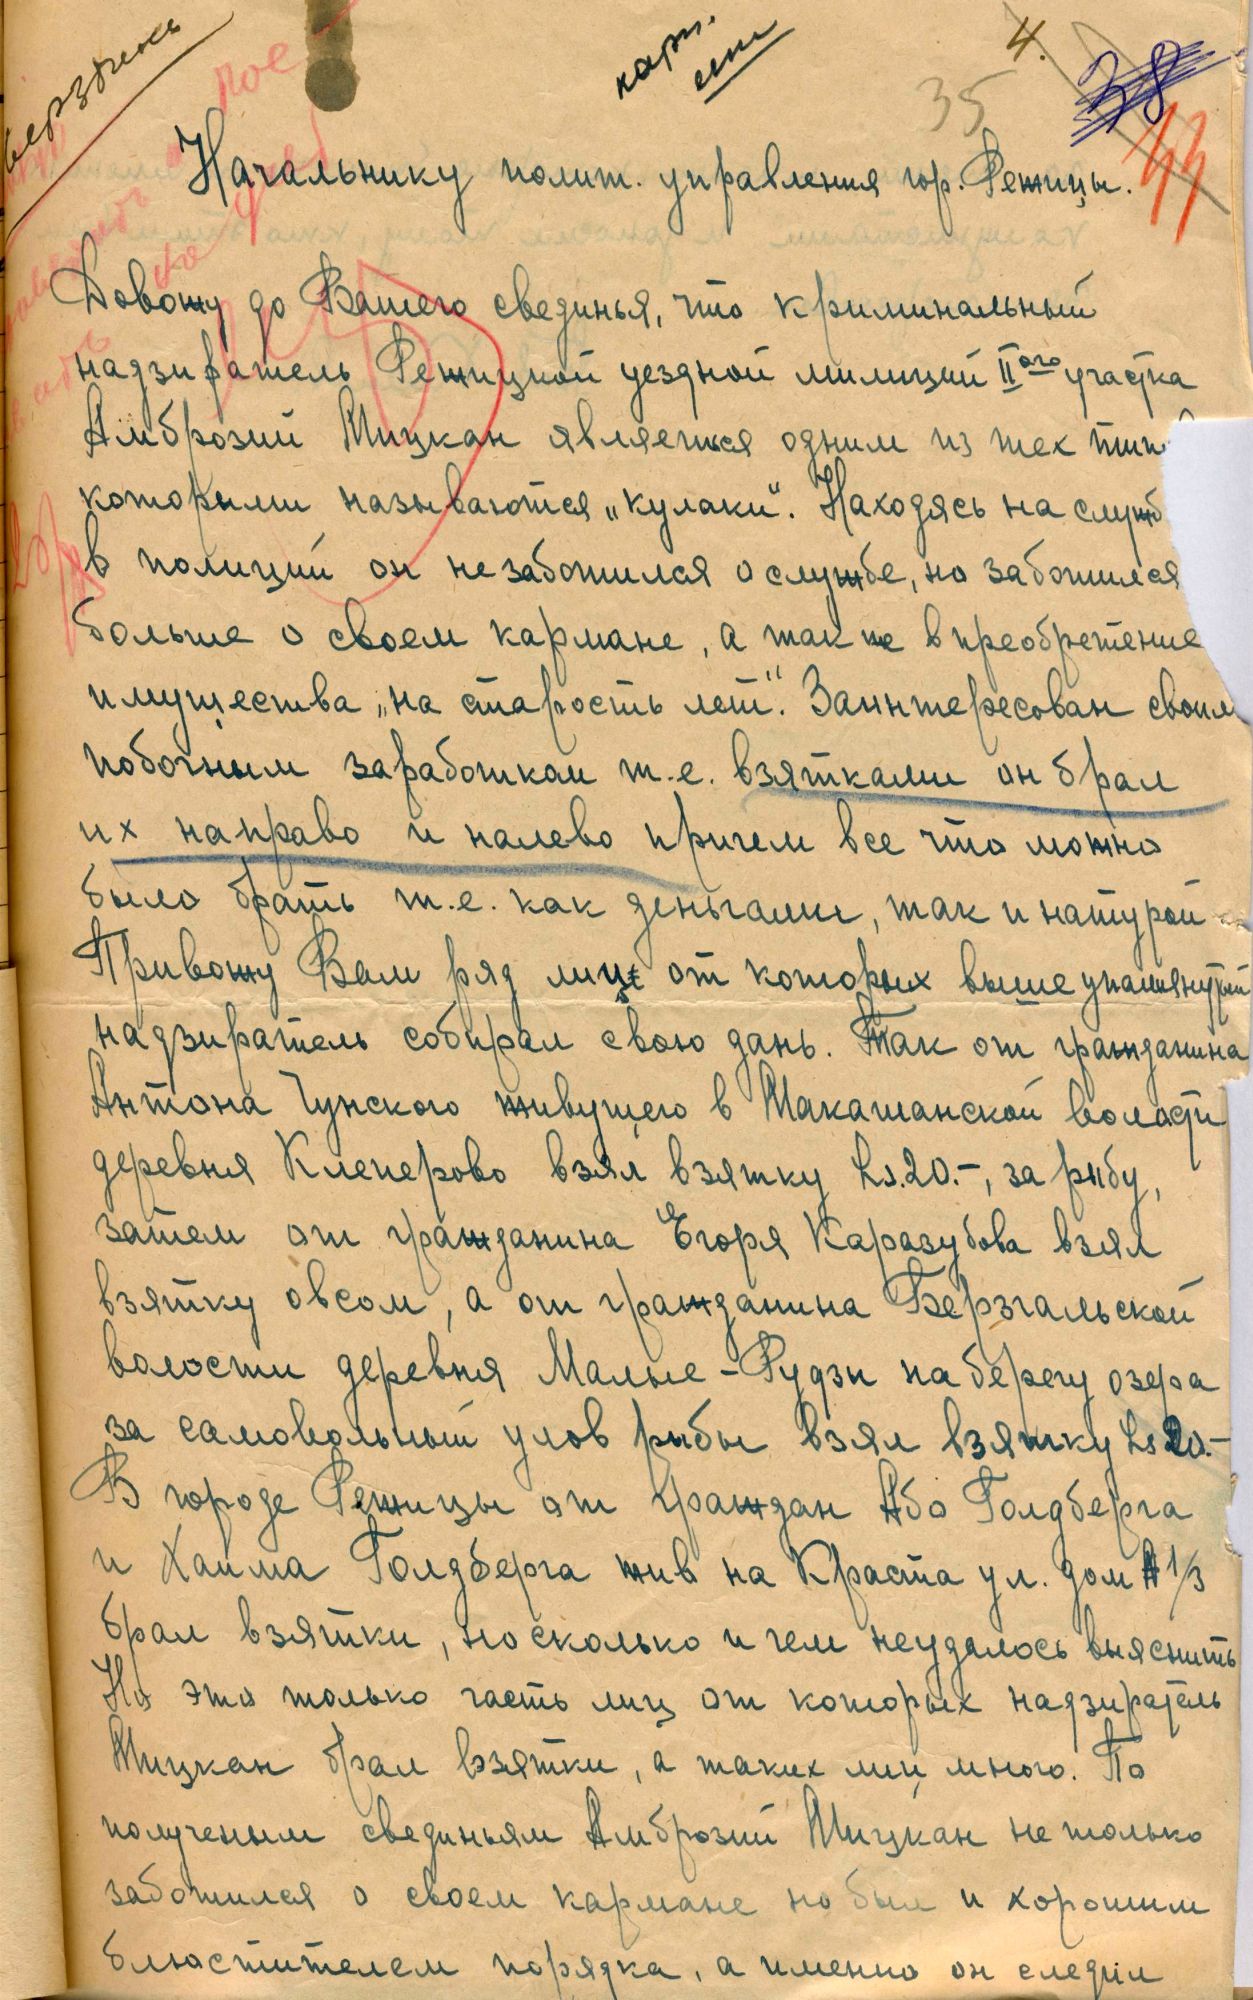 4.
35
38
33
Начальнику полит. управления гор. Режицы.
Довожу до Вашего свединья, что криминальный
надзиратель Режицкой уездной милиций II ого участка
Амброзий Мицкан является одним из тех
которыми называются „кулаки“. Находясь на служб
в полиций он незаботился о службе, но заботился
больше о своем кармане, а так же в преобретение
имущества „на старость лет“. Заинтересован своим
побочным заработком т.е. взятками он брал
их направо и налево причем все что можно
было брать т.е. как деньгами, так и натурой
Привожу Вам ряд лиц от которых выше упамянутый
надзиратель собирал свою дань. Так от гражданина
Антона Чунского живущего в Макашанской воласти
деревня Клеперово взял взятку Ls.20.-, за рыбу,
затем от гражданина Егоря Каразубова взял
взятку овсом, а от гражданина Берзгальской
воласти деревня Малые-Рудзи на берегу озера
за самовольный улов рыбы взял взятку Ls 20.-
В городе Режицы от граждан Або Голдберга
и Хаима Голдберга жив на Краста ул. дом № 1/3
брал взятки, но сколько и чем неудалось выяснить
Но это только часть лиц от которых надзиратель
Мицкан брал взятки, а таких лиц много. По
полученым свединьям Амброзий Мицкан не только
заботился о своем кармане но был и хорошим
блюстителем порядка, а именно он следил